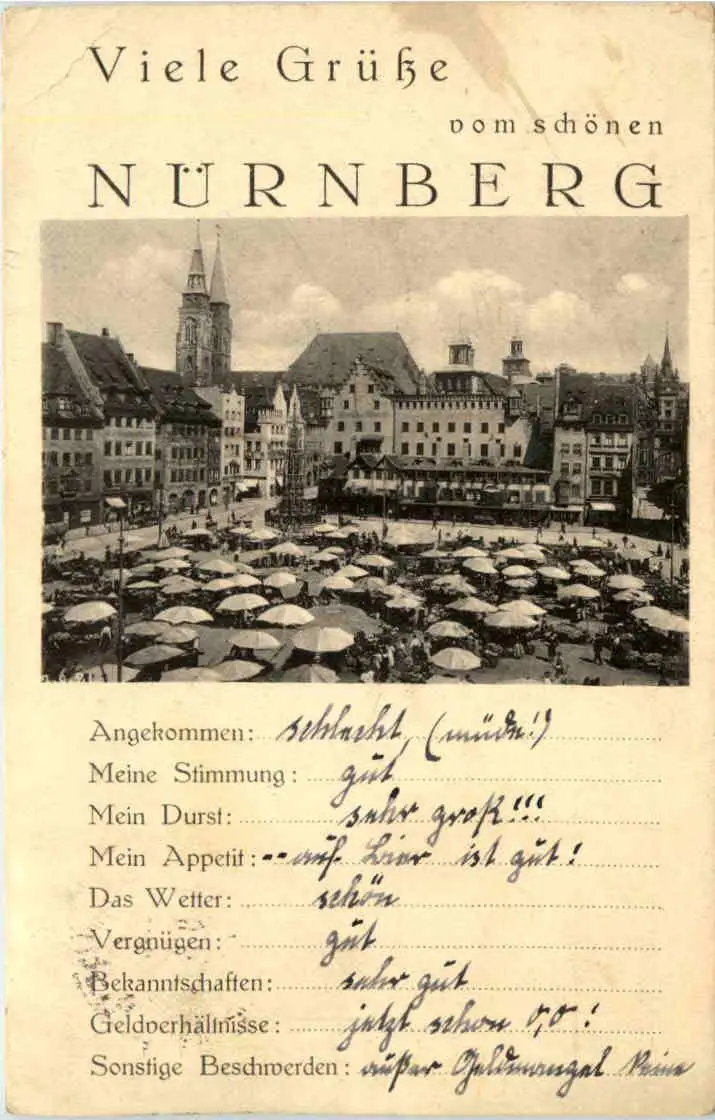 Viele Grüße
vom schönen
NÜRNBERG
Angekommen: schlecht, (müde!)
Meine Stimmung: gut
Mein Durst: sehr groß!!!
Mein Appetit: -- auf Bier ist gut!
Das Wetter: schön
Vergnügen: gut
Bekanntschaften: sehr gut
Geldverhältnisse: jetzt schon 0,0!
Sonstige Beschwerden: außer Geldmangel keine